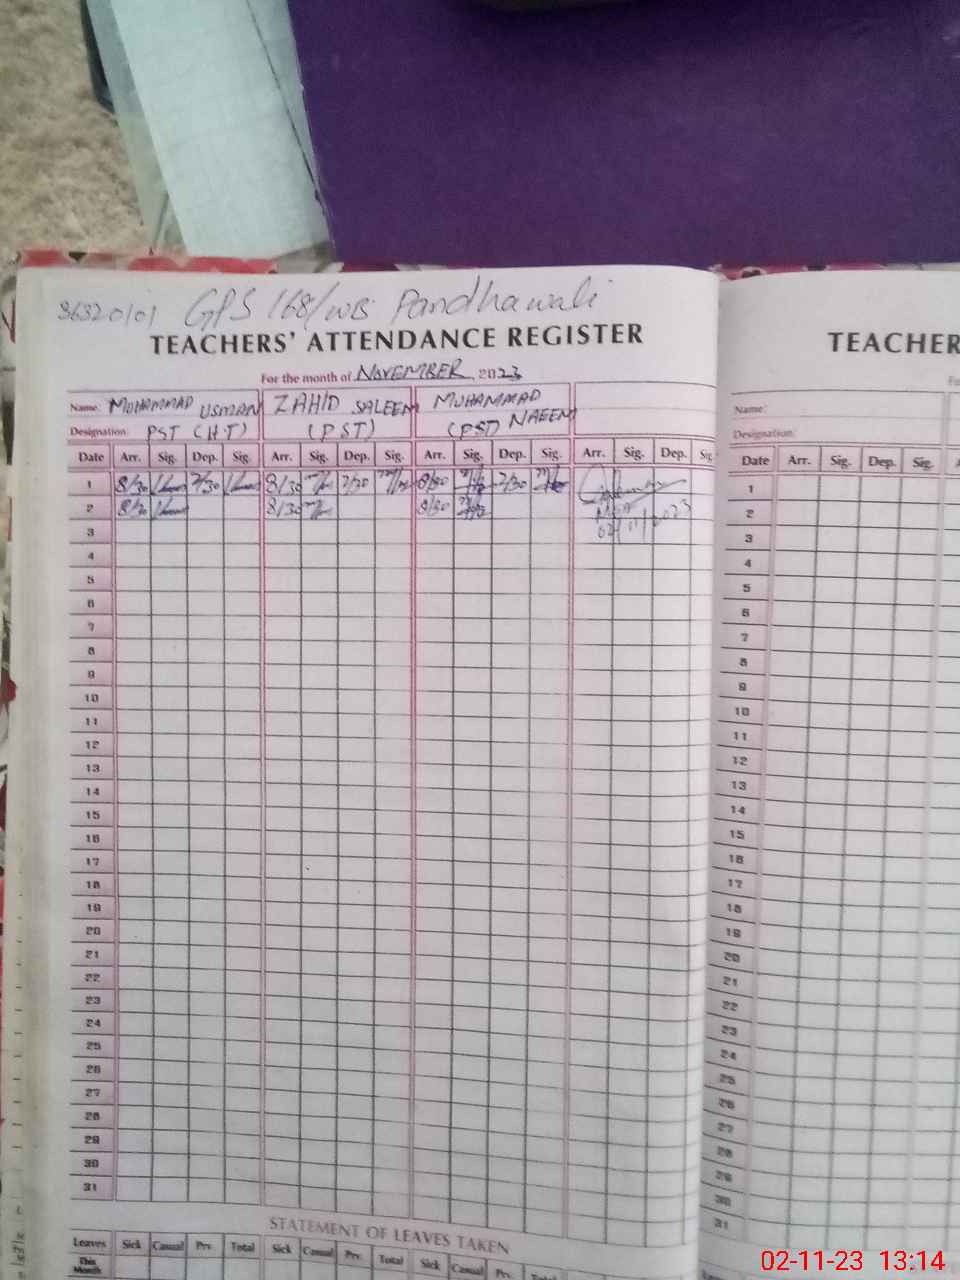 GPS 168/WB Pandhawali
TEACHERS' ATTENDANCE REGISTER
For the month of NOVEMBER 2023
Name: MUHAMMAD USMAN ZAHID SALEEM MUHAMMAD NAEEM
Designation: PST (H.T) (PST) (PST)
Date Arr. Sig. Dep. Sig. Arr. Sig. Dep. Sig. Arr. Sig. Dep. Sig. Arr. Sig. Dep. Sig.
1 8/30 7/30 8/30 7/30 8/30 2/30
2 8/30 8/30 8/30
02/11/2023
3
4
5
6
7
8
9
10
11
12
13
14
15
16
17
18
19
20
21
22
23
24
25
26
27
28
29
30
31
STATEMENT OF LEAVES TAKEN
Leaves Sick Casual Prv. Total Sick Casual Prv. Total Sick Casual Prv. Total
This Month
TEACHER
Name:
Designation:
Date Arr. Sig. Dep. Sig.
1
2
3
4
5
6
7
8
9
10
11
12
13
14
15
16
17
18
19
20
21
22
23
24
25
26
27
28
29
30
31
02-11-23 13:14